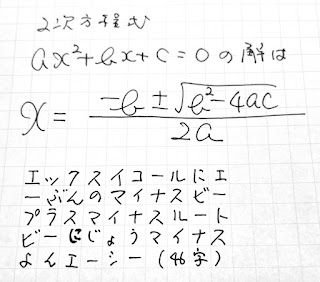 2次方程式
ax²+bx+c=0の解は
x= -b±√b²-4ac / 2a
エックスイコールにエ
ーぶんのマイナスビー
プラスマイナスルート
ビーにじょうマイナス
よんエーシー(46字)